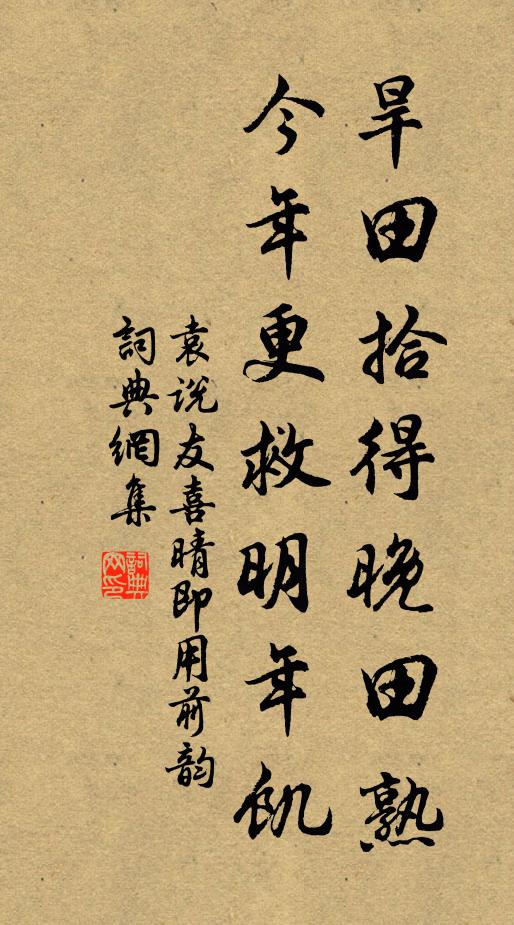 旱田拾得晚田熟
今年更救明年飢
袁说友喜晴即用前韵
詞典網集
詞典网印